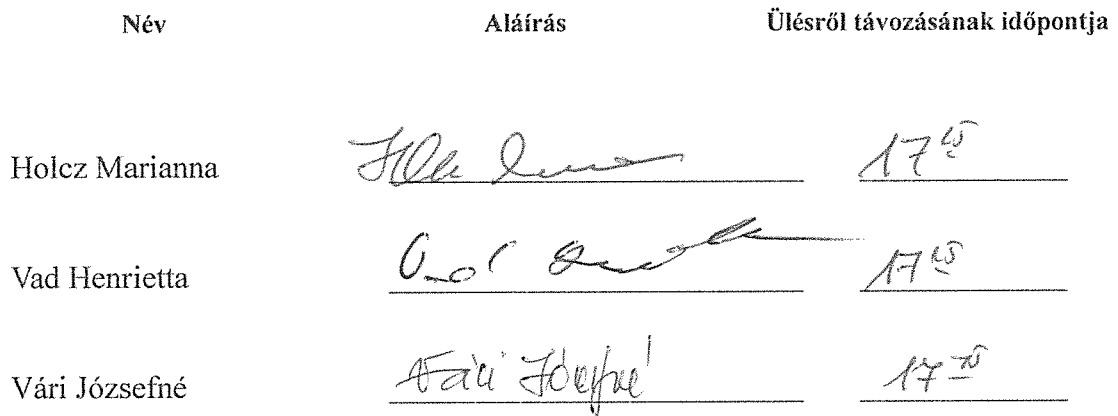 Név Aláírás Ülésről távozásának időpontja
Holcz Marianna 17
Vad Henrietta 17
Vári Józsefné Vári Józsefné 17